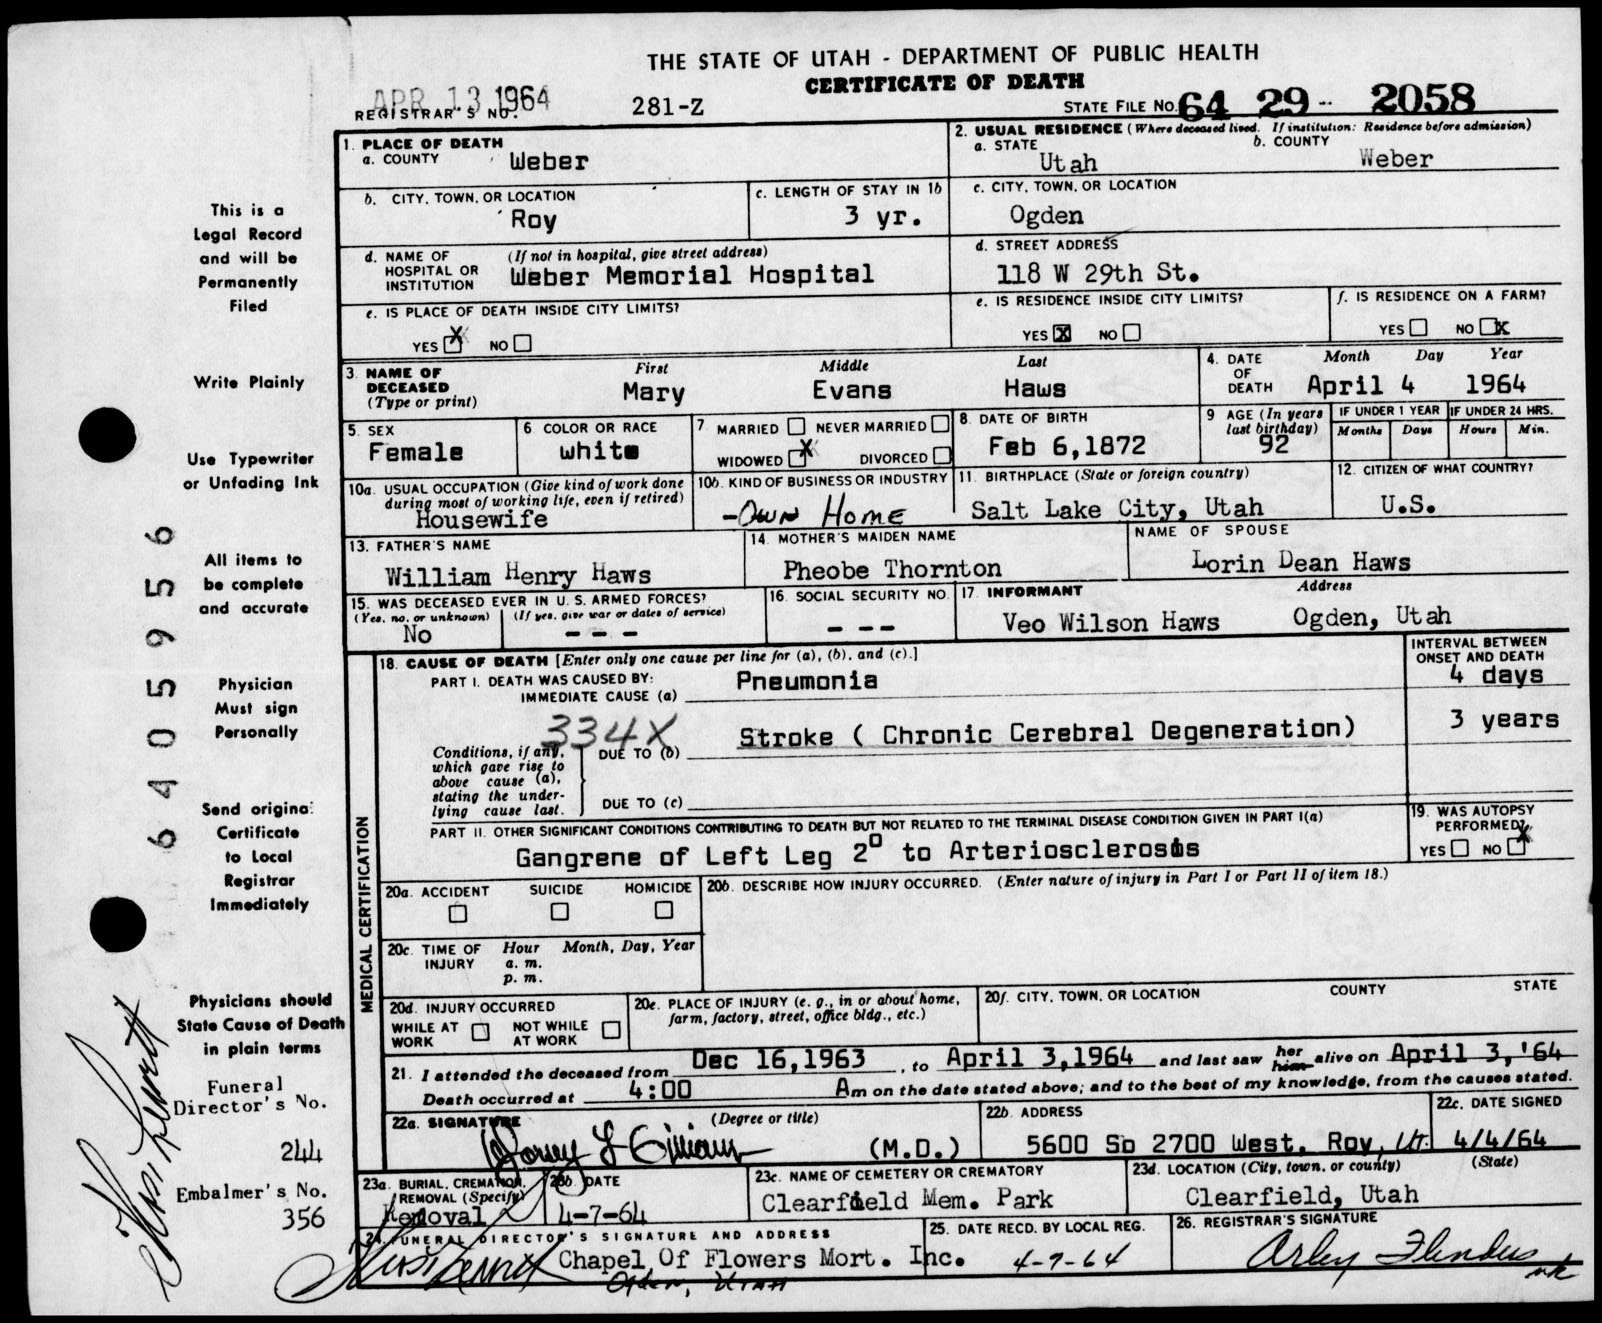 THE STATE OF UTAH - DEPARTMENT OF PUBLIC HEALTH
CERTIFICATE OF DEATH
APR 13 1964
REGISTRAR'S NO. 281-Z STATE FILE NO. 64 29 - 2058
1. PLACE OF DEATH
a. COUNTY Weber
2. USUAL RESIDENCE (Where deceased lived. If institution: Residence before admission)
a. STATE Utah b. COUNTY Weber
b. CITY, TOWN, OR LOCATION Roy
c. LENGTH OF STAY IN 1b 3 yr.
c. CITY, TOWN, OR LOCATION
Ogden
d. NAME OF HOSPITAL OR INSTITUTION (If not in hospital, give street address)
Weber Memorial Hospital
d. STREET ADDRESS
118 W 29th St.
e. IS PLACE OF DEATH INSIDE CITY LIMITS?
YES X NO
e. IS RESIDENCE INSIDE CITY LIMITS?
YES X NO
f. IS RESIDENCE ON A FARM?
YES NO X
3. NAME OF DECEASED (Type or print)
First Middle Last
Mary Evans Haws
4. DATE OF DEATH Month Day Year
April 4 1964
5. SEX
Female
6. COLOR OR RACE
white
7 MARRIED NEVER MARRIED
WIDOWED X DIVORCED
8. DATE OF BIRTH
Feb 6,1872
9 AGE (In years last birthday)
92
IF UNDER 1 YEAR IF UNDER 24 HRS.
Months Days Hours Min.
10a. USUAL OCCUPATION (Give kind of work done during most of working life, even if retired)
Housewife
10b. KIND OF BUSINESS OR INDUSTRY
-Own Home
11. BIRTHPLACE (State or foreign country)
Salt Lake City, Utah
12. CITIZEN OF WHAT COUNTRY?
U.S.
13. FATHER'S NAME
William Henry Haws
14. MOTHER'S MAIDEN NAME
Pheobe Thornton
NAME OF SPOUSE
Lorin Dean Haws
15. WAS DECEASED EVER IN U.S. ARMED FORCES?
(Yes, no, or unknown) (If yes, give war or dates of service)
No - - -
16. SOCIAL SECURITY NO.
- - -
17. INFORMANT Address
Veo Wilson Haws Ogden, Utah
MEDICAL CERTIFICATION
18. CAUSE OF DEATH [Enter only one cause per line for (a), (b), and (c).]
INTERVAL BETWEEN ONSET AND DEATH
PART I. DEATH WAS CAUSED BY:
IMMEDIATE CAUSE (a) Pneumonia 4 days
334X
Conditions, if any, which gave rise to above cause (a), stating the underlying cause last.
DUE TO (b) Stroke ( Chronic Cerebral Degeneration) 3 years
DUE TO (c)
PART II. OTHER SIGNIFICANT CONDITIONS CONTRIBUTING TO DEATH BUT NOT RELATED TO THE TERMINAL DISEASE CONDITION GIVEN IN PART I(a)
Gangrene of Left Leg 2° to Arteriosclerosis
19. WAS AUTOPSY PERFORMED?
YES NO X
20a. ACCIDENT SUICIDE HOMICIDE
20b. DESCRIBE HOW INJURY OCCURRED. (Enter nature of injury in Part I or Part II of item 18.)
20c. TIME OF INJURY Hour Month, Day, Year
a. m.
p. m.
20d. INJURY OCCURRED
WHILE AT WORK NOT WHILE AT WORK
20e. PLACE OF INJURY (e. g., in or about home, farm, factory, street, office bldg., etc.)
20f. CITY, TOWN, OR LOCATION COUNTY STATE
21. I attended the deceased from Dec 16,1963, to April 3,1964 and last saw her him alive on April 3,'64
Death occurred at 4:00 Am on the date stated above; and to the best of my knowledge, from the causes stated.
22a. SIGNATURE (Degree or title)
(M.D.)
22b. ADDRESS
5600 So 2700 West, Roy, Ut.
22c. DATE SIGNED
4/4/64
23a. BURIAL, CREMATION, REMOVAL (Specify)
Removal
23b. DATE
4-7-64
23c. NAME OF CEMETERY OR CREMATORY
Clearfield Mem. Park
23d. LOCATION (City, town, or county) (State)
Clearfield, Utah
24. FUNERAL DIRECTOR'S SIGNATURE AND ADDRESS
Chapel Of Flowers Mort. Inc.
Ogden, Utah
25. DATE RECD. BY LOCAL REG.
4-7-64
26. REGISTRAR'S SIGNATURE
This is a
Legal Record
and will be
Permanently
Filed
Write Plainly
Use Typewriter
or Unfading Ink
All items to
be complete
and accurate
Physician
Must sign
Personally
Send original
Certificate
to Local
Registrar
Immediately
Physicians should
State Cause of Death
in plain terms
Funeral
Director's No.
244
Embalmer's No.
356
64059956